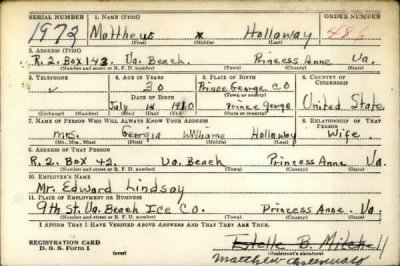 SERIAL NUMBER 1. NAME (Print) ORDER NUMBER
1972 Matthew x Holloway 486
(First) (Middle) (Last)
2. ADDRESS (Print)
R.2. Box 142. Va. Beach. Princess Anne Va.
(Number and street or R. F. D. number) (Town) (County) (State)
3. TELEPHONE 4. AGE IN YEARS 5. PLACE OF BIRTH 6. COUNTRY OF CITIZENSHIP
30 Prince George CO
DATE OF BIRTH (Town or county)
July 14 1910 Prince George United State
(Mo.) (Day) (Yr.) (State or country)
7. NAME OF PERSON WHO WILL ALWAYS KNOW YOUR ADDRESS 8. RELATIONSHIP OF THAT PERSON
Mrs. Georgia Williams Holloway Wife
(Mr., Mrs., Miss) (First) (Middle) (Last)
9. ADDRESS OF THAT PERSON
R.2. Box 42. Va. Beach Princess Anne Va.
(Number and street or R. F. D. number) (Town) (County) (State)
10. EMPLOYER'S NAME
Mr. Edward Lindsay
11. PLACE OF EMPLOYMENT OR BUSINESS
9th St. Va. Beach Ice Co. Princess Anne Va.
(Number and street or R. F. D. number) (Town) (County) (State)
I AFFIRM THAT I HAVE VERIFIED ABOVE ANSWERS AND THAT THEY ARE TRUE.
REGISTRATION CARD Estelle B. Mitchell
D. S. S. Form 1 (over) (Registrant's signature)
Matthew